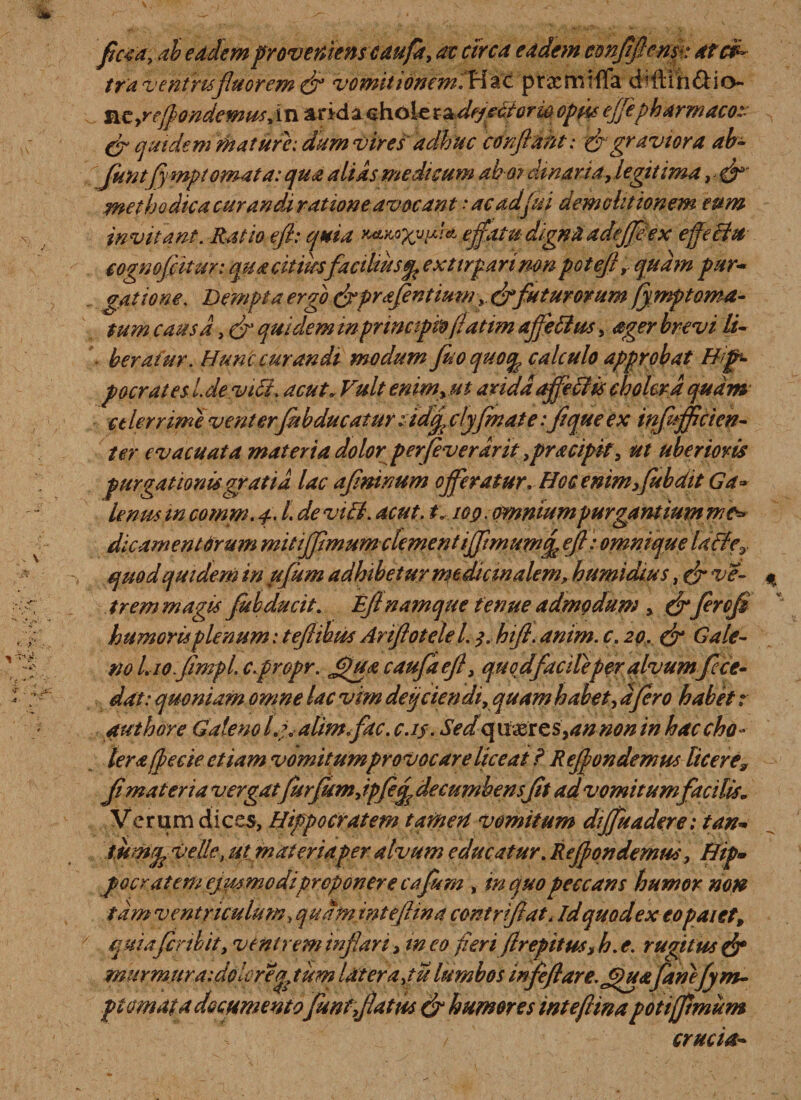 ficca, ab eadem proveniens causa, ac circa eadem consistens: at ci-
tra ventris fluorem & vomitionem. Hac præmissa distinctio-
ne, respondemus, in arida cholera dejectorio opus esse pharmaco:
& quidem mature: dum vires adhuc constant: & graviora ab-
sunt symptomata: quæ aliàs medicum ab ordinaria, legitima, &
methodica curandi ratione avocant: ac ad sui demolitionem eum
invitant. Ratio est: quia κακοχυμία effatu digna adesse ex effectu
cognoscitur: quæ citius facilius q; extirpari non potest, quàm pur-
gatione. Dempta ergò & præsentium, & futurorum symptoma-
tum causâ, & quidem in principio statim affectus, æger brevi li-
beratur. Hunc curandi modum suo quoq; calculo approbat Hip-
pocrates l. de vict. acut. Vult enim, ut aridâ affectis cholerâ quàm
celerrimè venter subducatur: idq; clysmate: sique ex insufficien-
ter evacuata materia dolor perseverârit, præcipit, ut uberioris
purgationis gratiâ lac asininum offeratur. Hoc enim, subdit Ga-
lenus in comm. 4. l. de vict. acut. t. 109. omnium purgantium me-
dicamentorum mitissimum clementissimumq; est: omnique lacte,
quod quidem in usum adhibetur medicinalem, humidius, & ve-
trem magis subducit. Est namque tenue admodum, & serosi
humoris plenum: testibus Aristotele l. 3. hist. anim. c. 20. & Gale-
no l. 10. simpl. c. propr. Quæ causa est, quod facilè per alvum sece-
dat: quoniam omne lac vim dejiciendi, quam habet, à sero habet:
authore Galeno l. 3. alim. fac. c. 15. Sed quæres, an non in hac cho-
leræ specie etiam vomitum provocare liceat? Respondemus licere,
si materia vergat sursum, ipseq; decumbens sit ad vomitum facilis.
Verum dices, Hippocratem tamen vomitum dissuadere: tan-
tumq; velle, ut materia per alvum educatur. Respondemus, Hip-
pocratem ejusmodi proponere casum, in quo peccans humor non
tàm ventriculum, quàm intestina contristat. Id quod ex eo patet,
quia scribit, ventrem inflari, in eo fieri strepitus, h. e. rugitus &
murmura: doloreq; tum latera, tũ lumbos infestare. Quæ sanè sym-
ptomata documento sunt, flatus & humores intestina potissimùm
crucia-